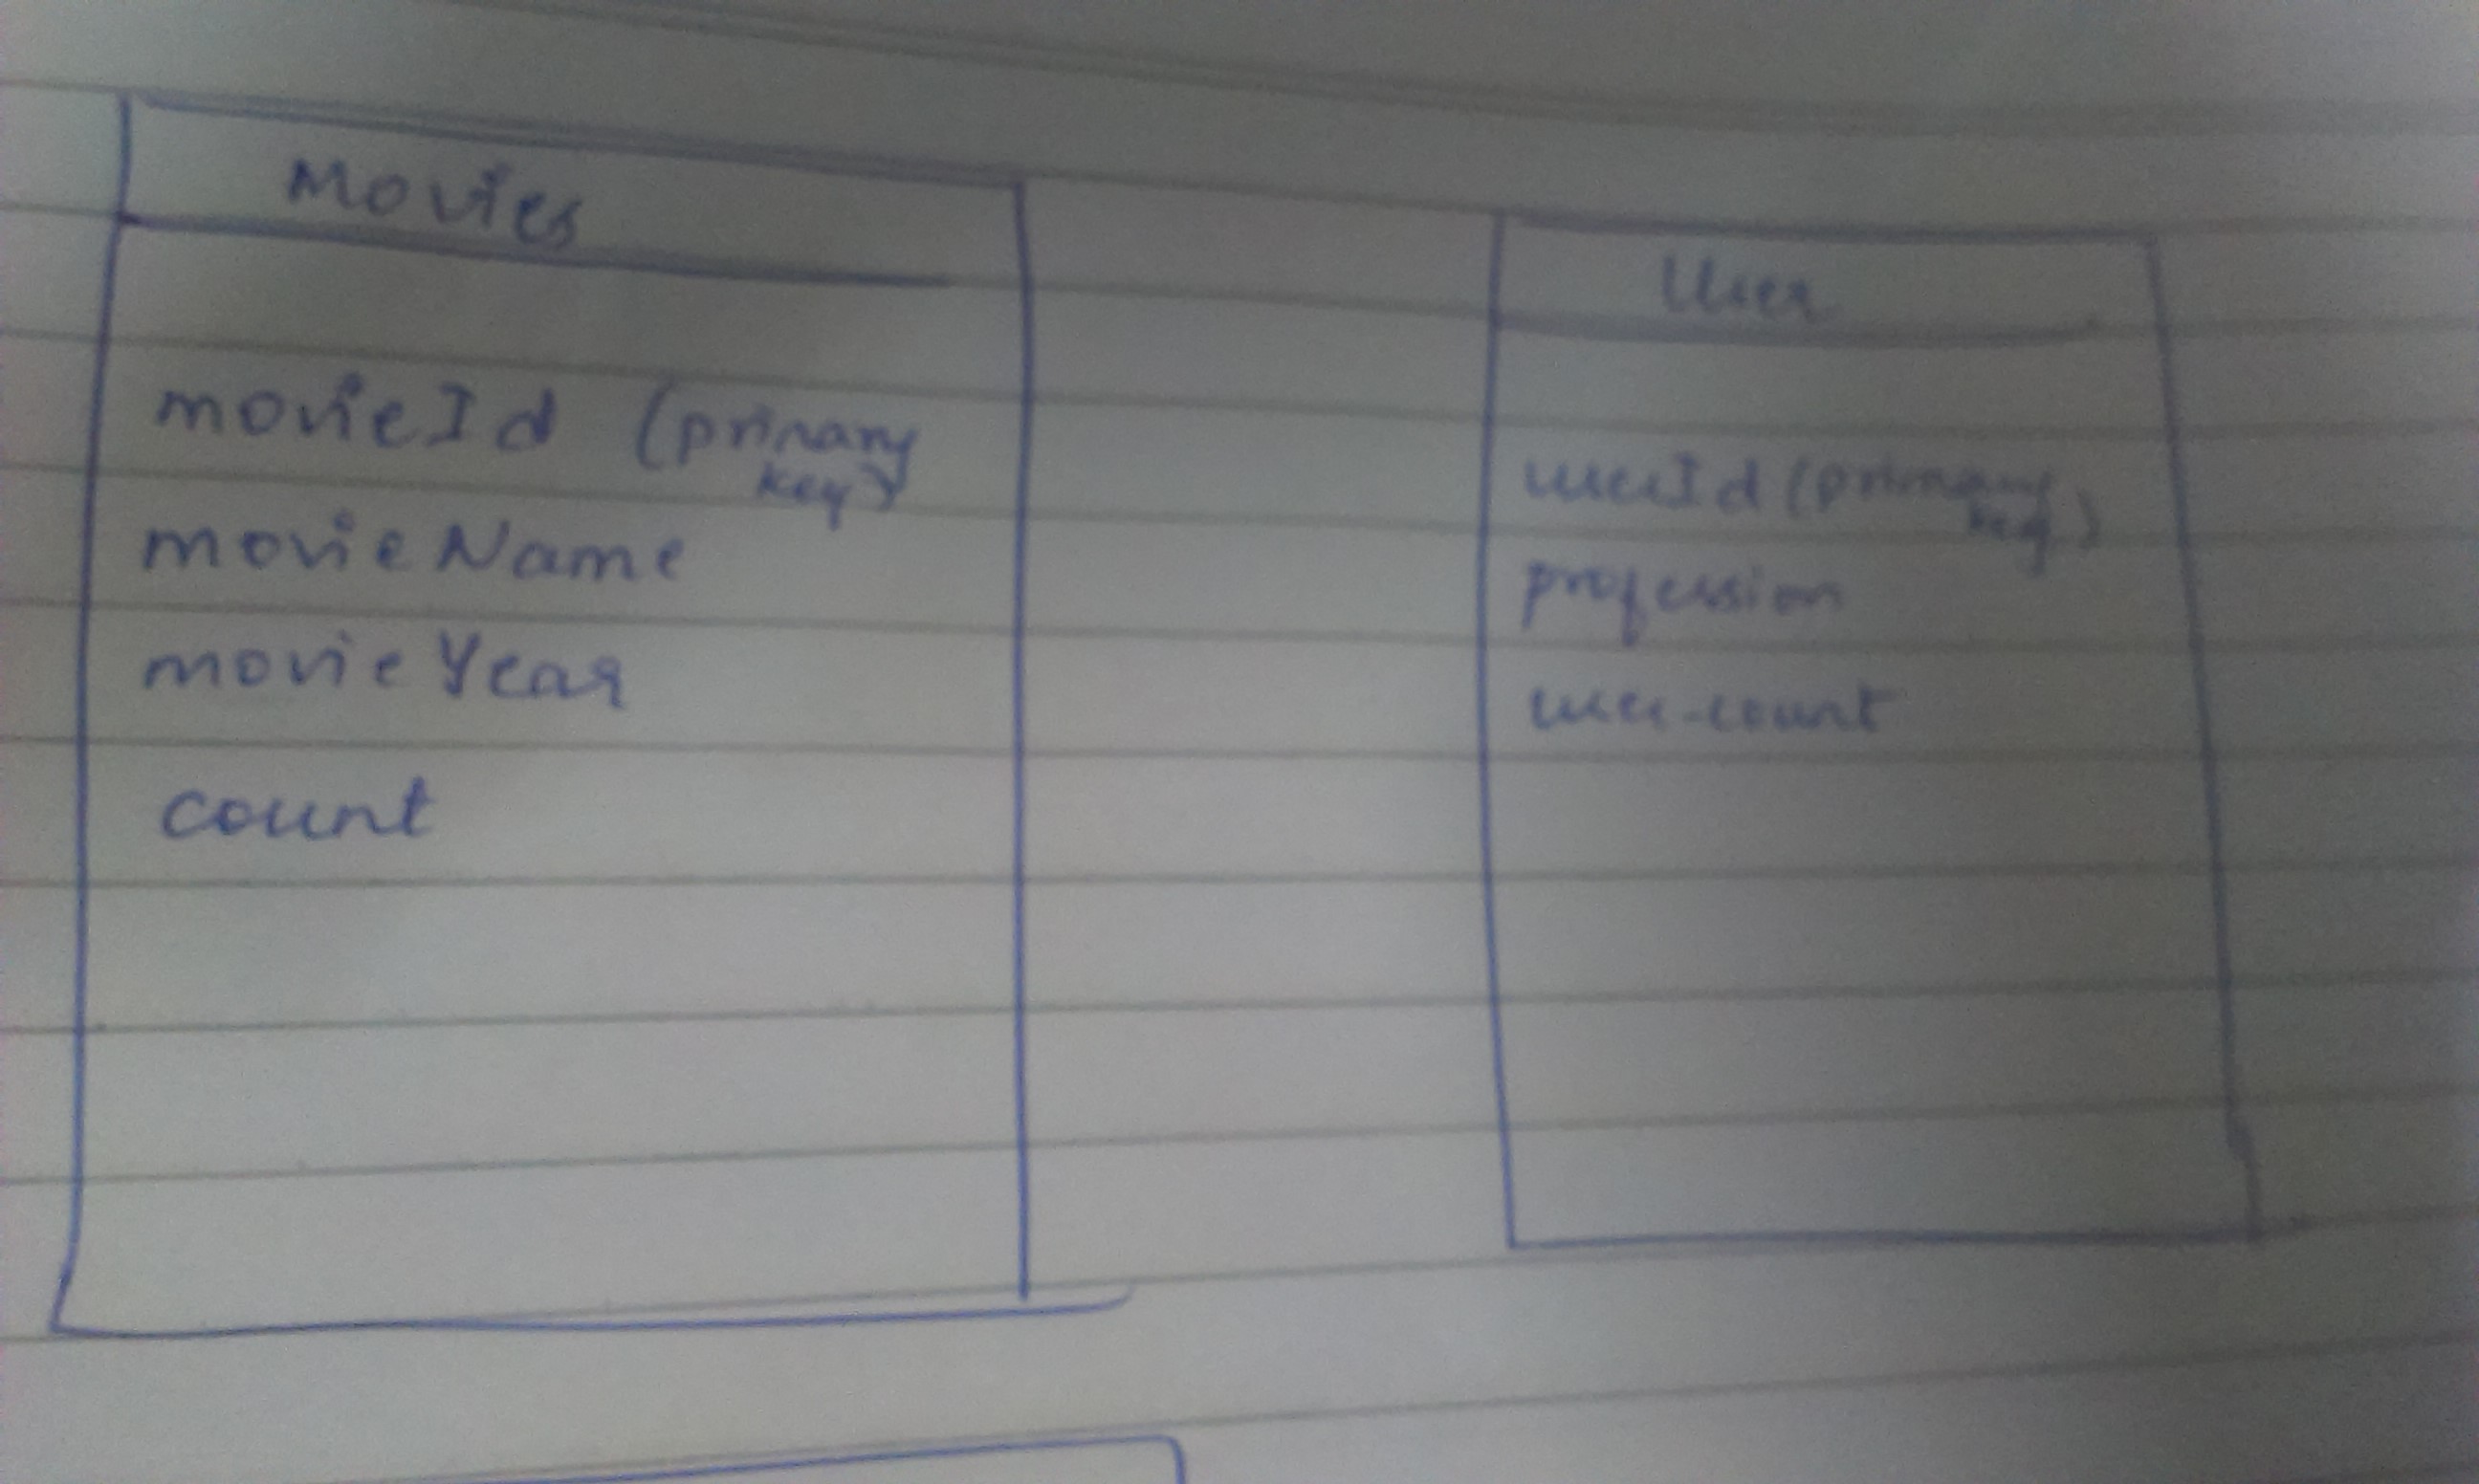 Movies
movieId (primary
key)
movieName
movieYear
count
User
userId (primary
key)
profession
user-count